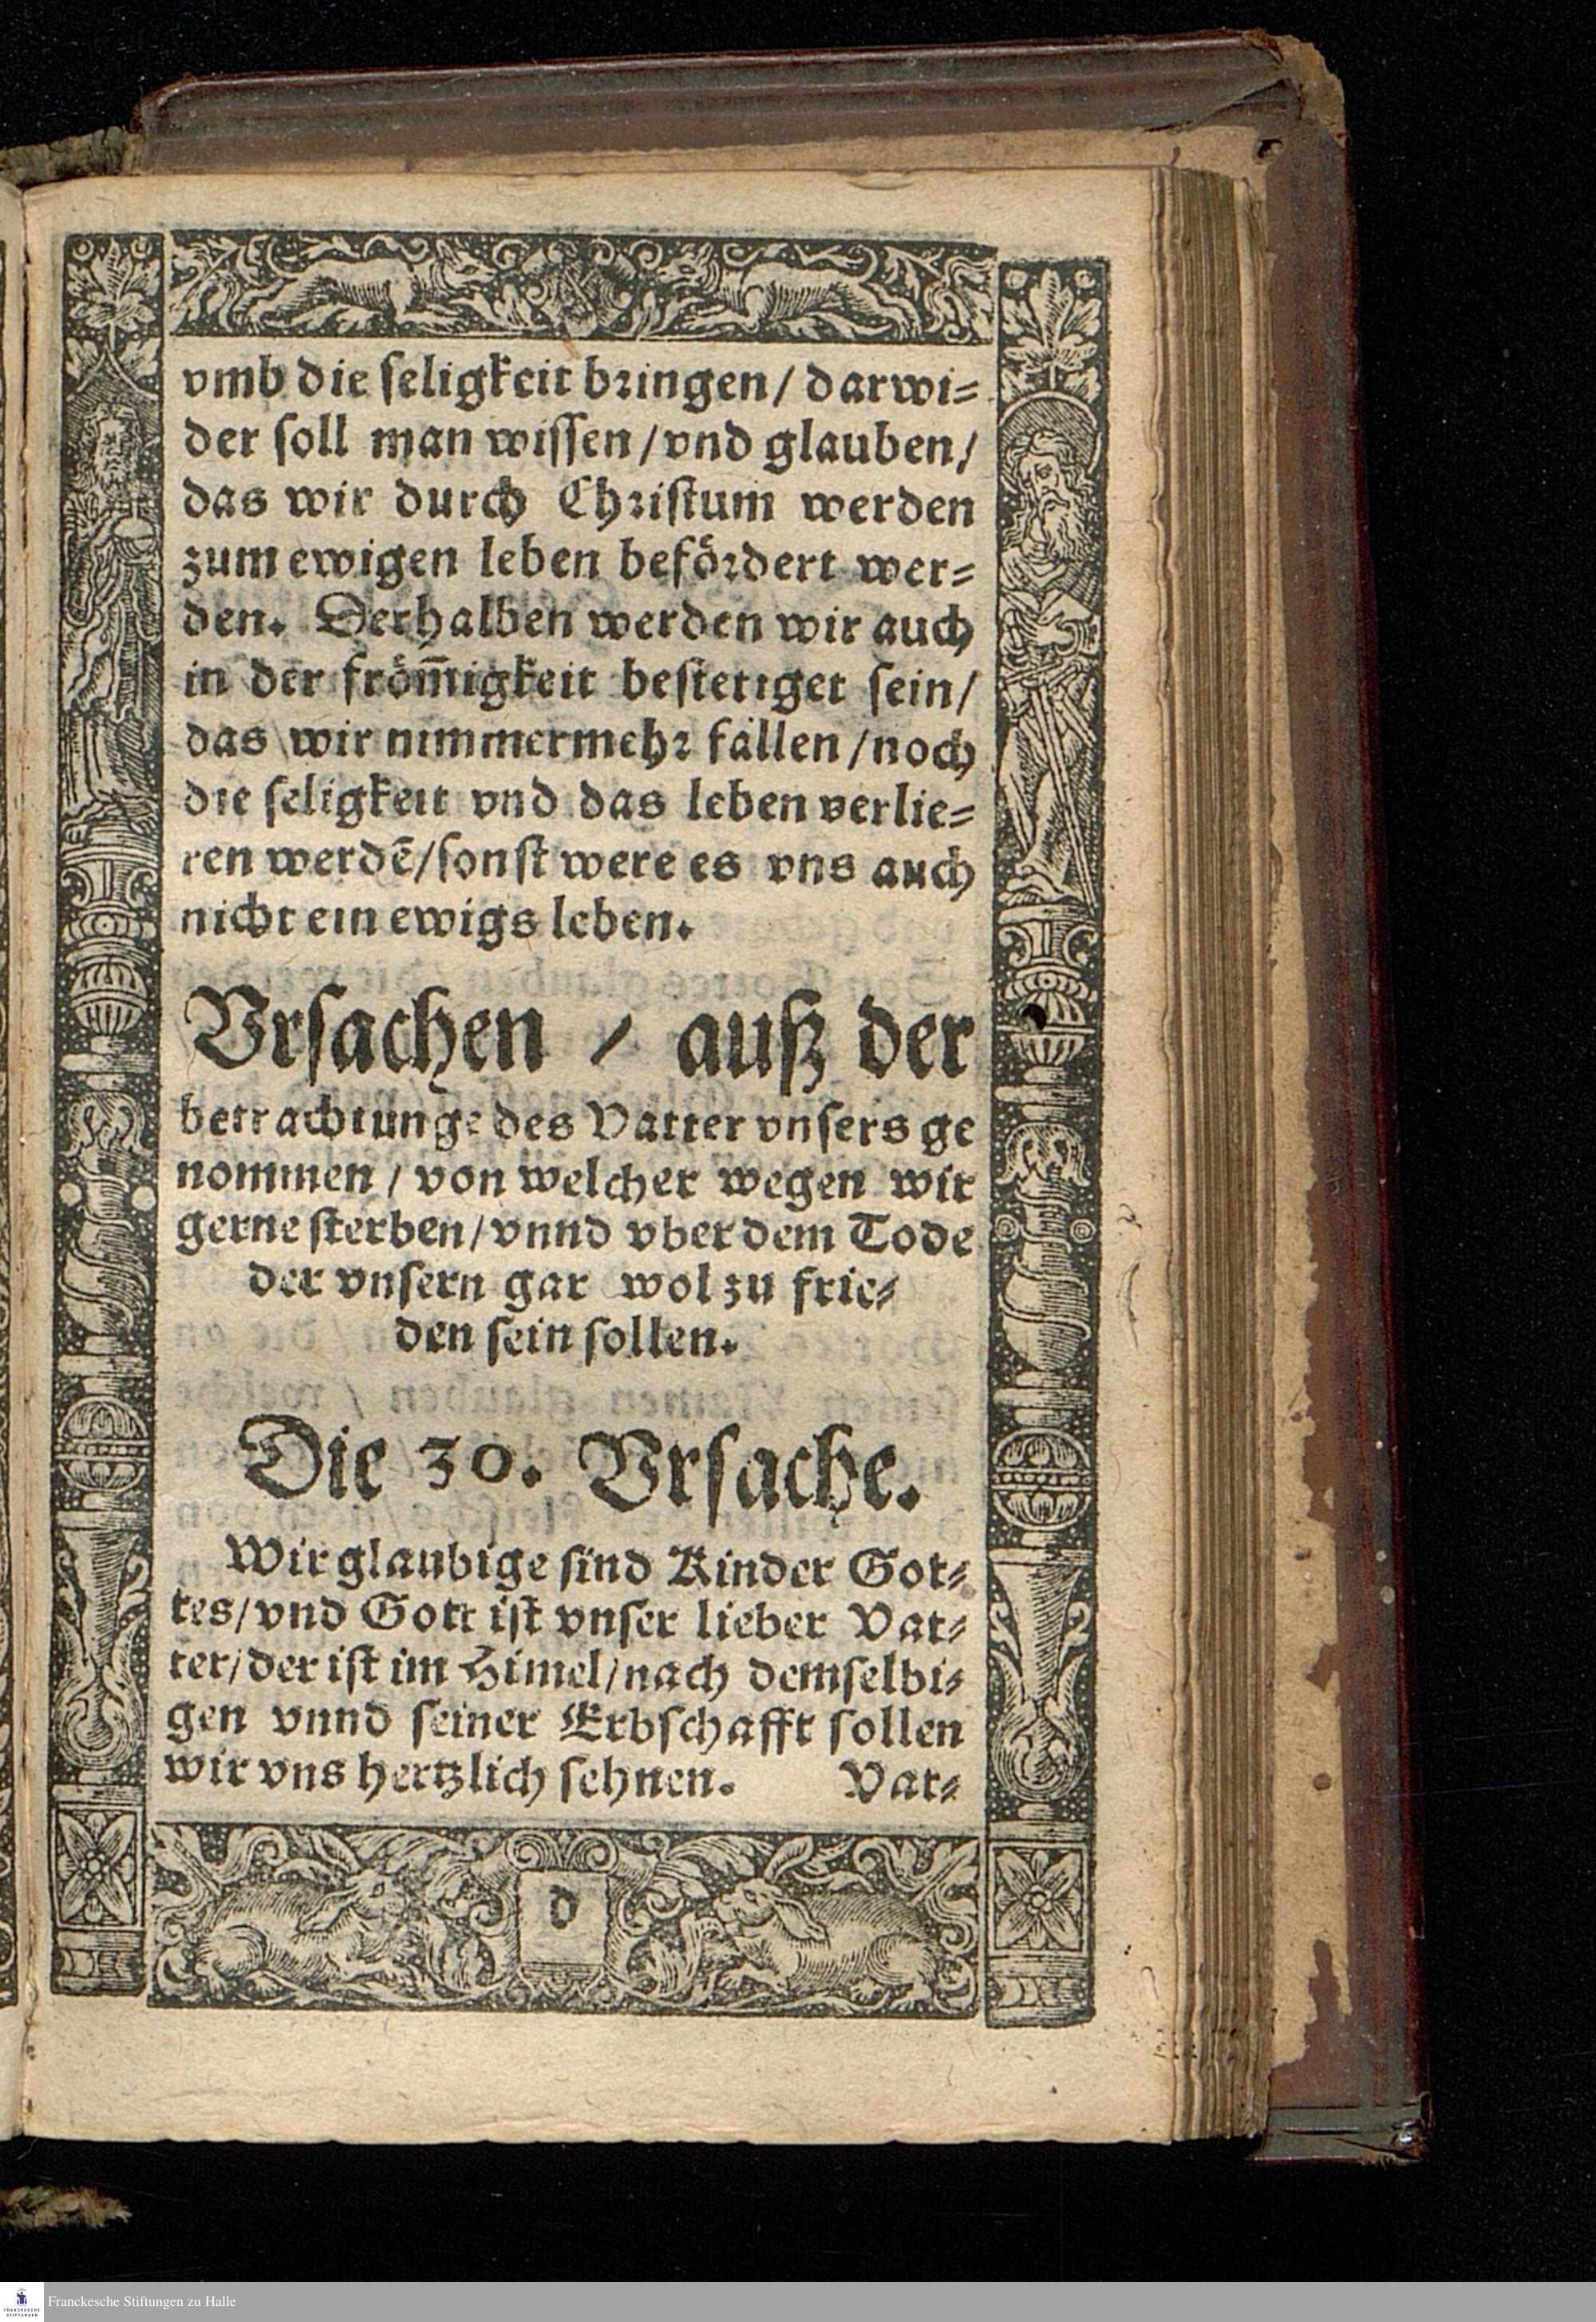 vmb die ſeligkeit bringen/ darwi⸗
der ſoll man wiſſen/vnd glauben/
das wir durch Chriſtum werden
zum ewigen leben befoͤrdert wer⸗
den. Derhalben werden wir auch
in der froͤm̄igkeit beſtetiget ſein/
das wir nimmermehr fallen/noch
die ſeligkeit vnd das leben verlie⸗
ren werdē/ſonſt were es vns auch
nicht ein ewigs leben.
Vrſachen / auſz der
betrachtunge des Vatter vnſers ge
nommen/ von welcher wegen wir
gerne ſterben/vnnd vber dem Tode
der vnſern gar wol zu frie⸗
den ſein ſollen.
Die 30. Vrſache.
Wir glaubige ſind Kinder Got⸗
tes/vnd Gott iſt vnſer lieber Vat⸗
ter/der iſt im Himel/nach demſelbi⸗
gen vnnd ſeiner Erbſchafft ſollen
wir vns hertzlich ſehnen. Vat⸗
d
FRANCKESCHE STIFTUNGEN
Franckesche Stiftungen zu Halle